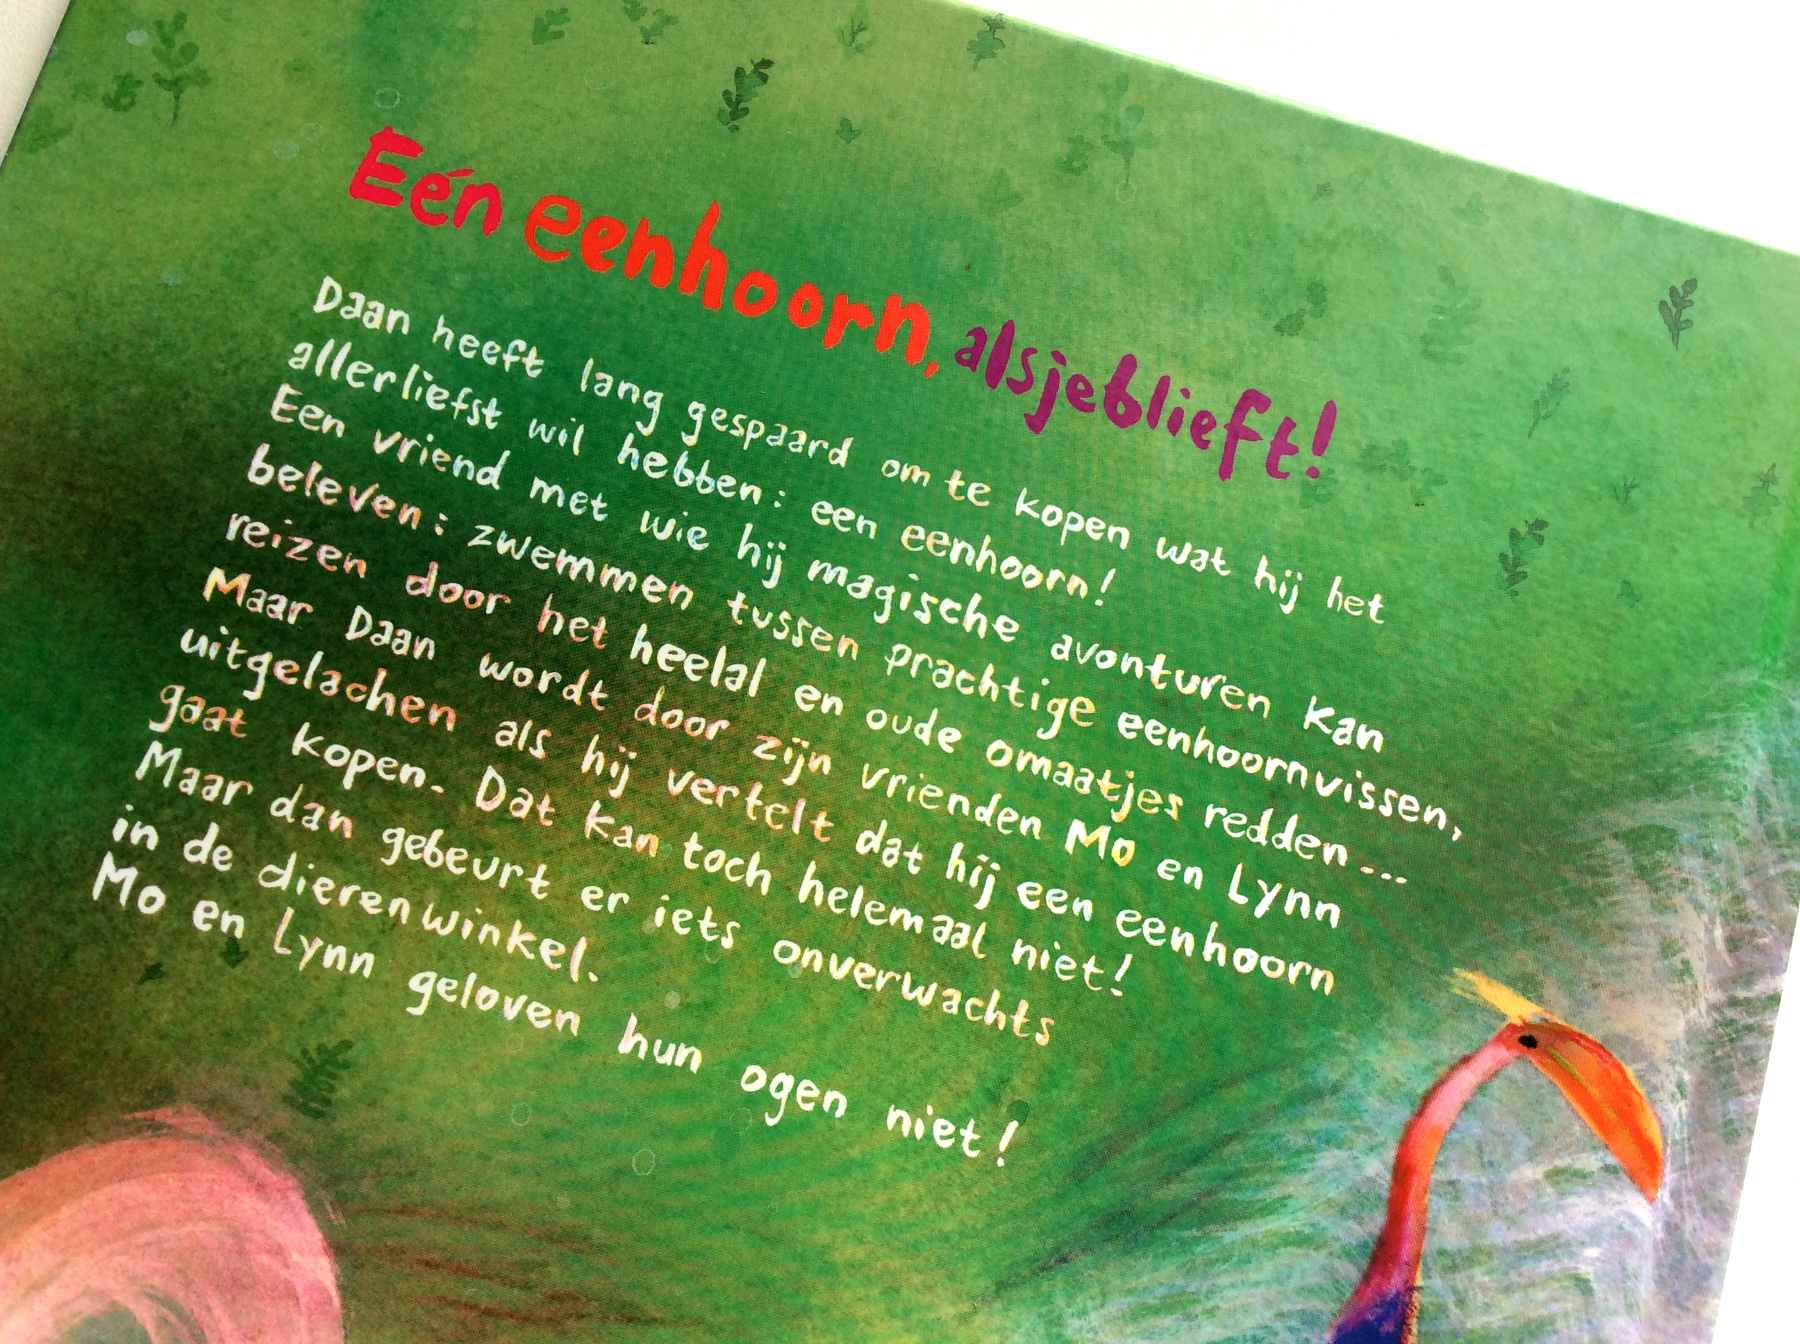 Eén eenhoorn, alsjeblieft!
Daan heeft lang gespaard om te kopen wat hij het
allerliefst wil hebben: een eenhoorn!
Een vriend met wie hij magische avonturen kan
beleven: zwemmen tussen prachtige eenhoornvissen,
reizen door het heelal en oude omaatjes redden...
Maar Daan wordt door zijn vrienden Mo en Lynn
uitgelachen als hij vertelt dat hij een eenhoorn
gaat kopen. Dat kan toch helemaal niet!
Maar dan gebeurt er iets onverwachts
in de dierenwinkel.
Mo en Lynn geloven hun ogen niet!